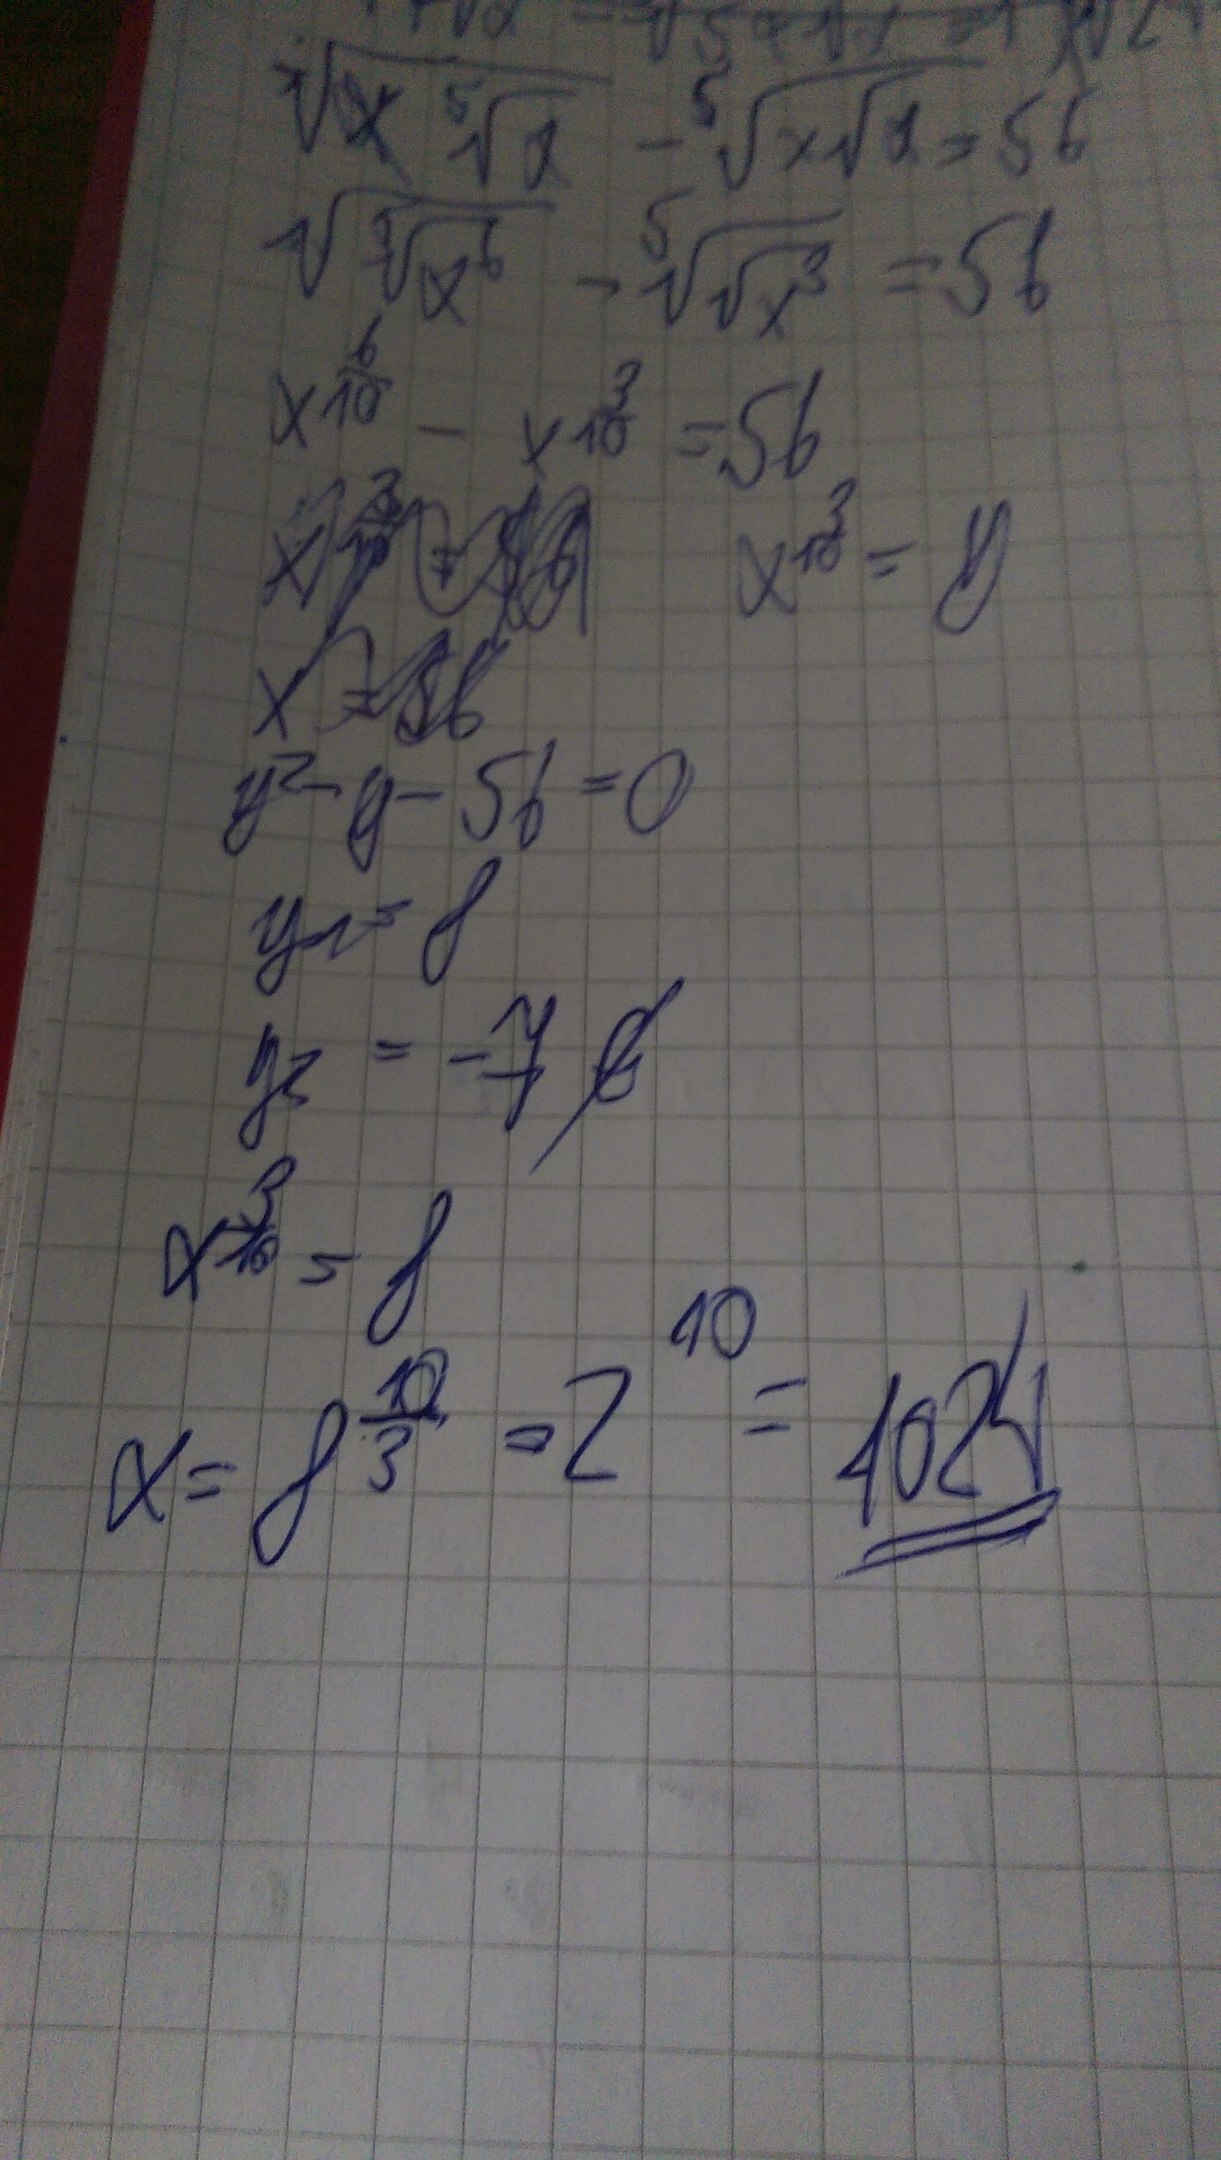 √(x ⁵√x) - ⁵√(x√x) = 56
√(⁵√x⁶) - ⁵√(√x³) = 56
x^(6/10) - x^(3/10) = 56
x^(3/10) = y
y² - y - 56 = 0
y₁ = 8
y₂ = -7
x^(3/10) = 8
x = 8^(10/3) = 2^10 = 1024